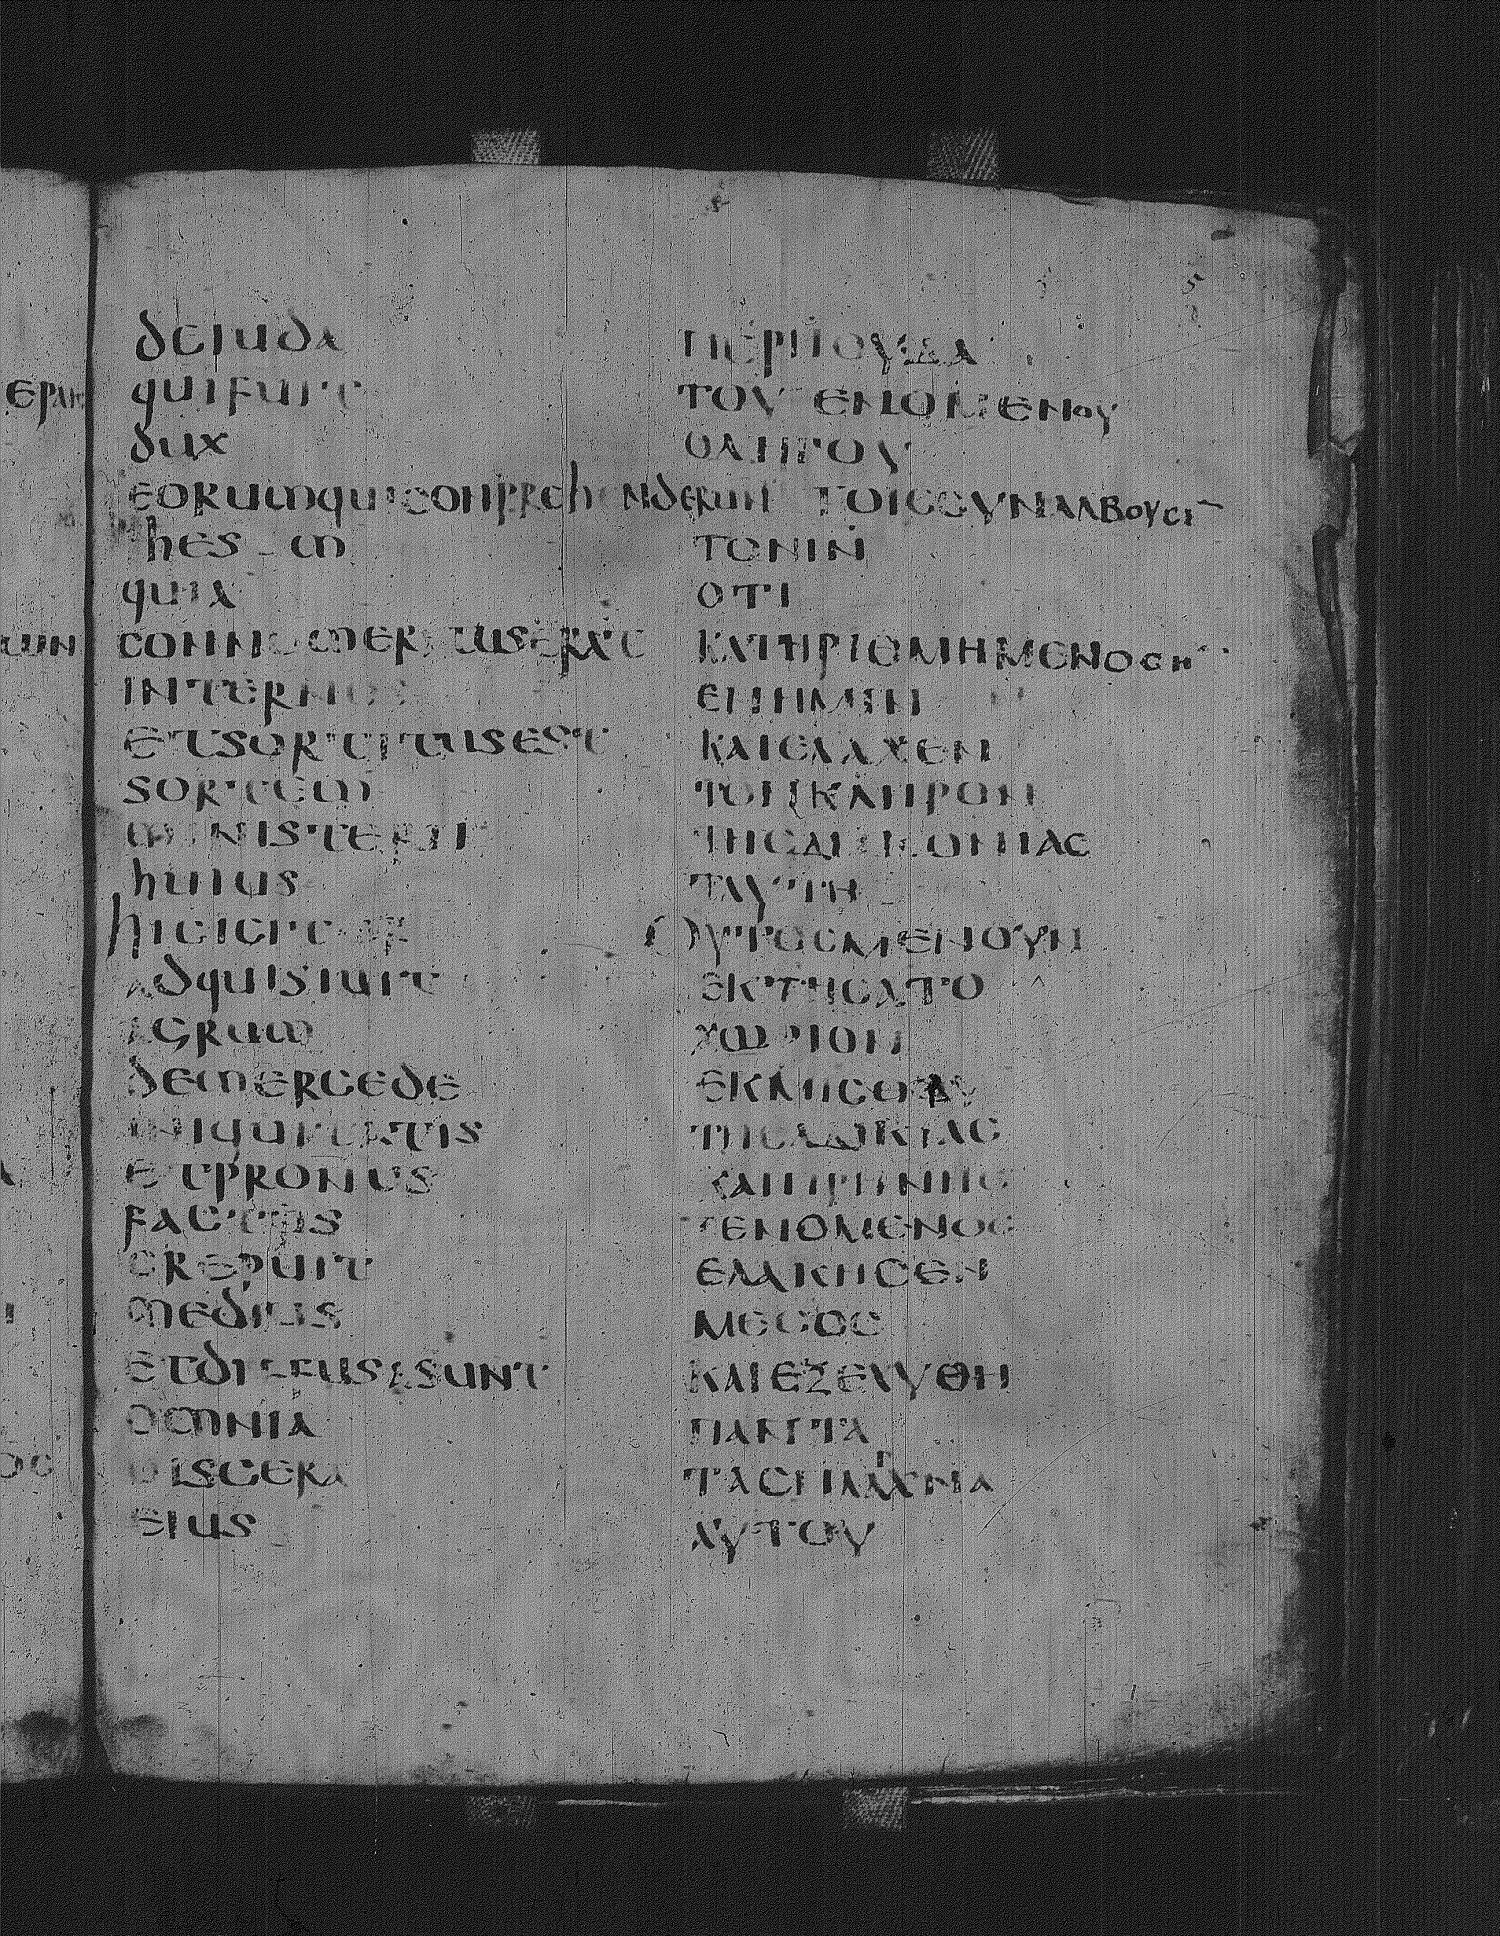 deiuda
quifuit
dux
eorumquiconprehenderun
ihesum
quia
connumeratuserat
internos
etsortitusest
sortem
ministerii
huius
hicigitur
adquisiuit
agrum
demercede
iniquitatis
etpronus
factus
crepuit
medius
etdiffusasunt
omnia
uiscera
eius
ΠΕΡΙΙΟΥΔΑ
ΤΟΥΓΕΝΟΜΕΝΟΥ
ΟΔΗΓΟΥ
ΤΟΙCCΥΝΛΑΒΟΥCΙ
ΤΟΝΙΝ
ΟΤΙ
ΚΑΤΗΡΙΘΜΗΜΕΝΟCΗ
ΕΝΗΜΙΝ
ΚΑΙΕΛΑΧΕΝ
ΤΟΝΚΛΗΡΟΝ
ΤΗCΔΙΑΚΟΝΙΑC
ΤΑΥΤΗ
ΟΥΤΟCΜΕΝΟΥΝ
ΕΚΤΗCΑΤΟ
ΧΩΡΙΟΝ
ΕΚΜΙCΘΟΥ
ΤΗCΑΔΙΚΙΑC
ΚΑΙΠΡΗΝΗC
ΓΕΝΟΜΕΝΟC
ΕΛΑΚΗCΕΝ
ΜΕCΟC
ΚΑΙΕΞΕΧΥΘΗ
ΠΑΝΤΑ
ΤΑCΠΛΑΧΝΑ
ΑΥΤΟΥ